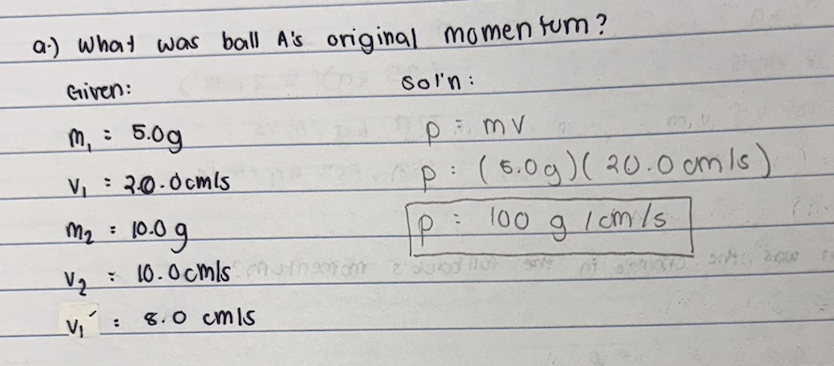 a.) What was ball A's original momentum?
Given:
m₁ = 5.0g
v₁ = 20.0cm/s
m₂ = 10.0 g
v₂ = 10.0cm/s
v₁′ = 8.0 cm/s
sol'n:
p = mv
p = (5.0g)(20.0cm/s)
p = 100 g/cm/s